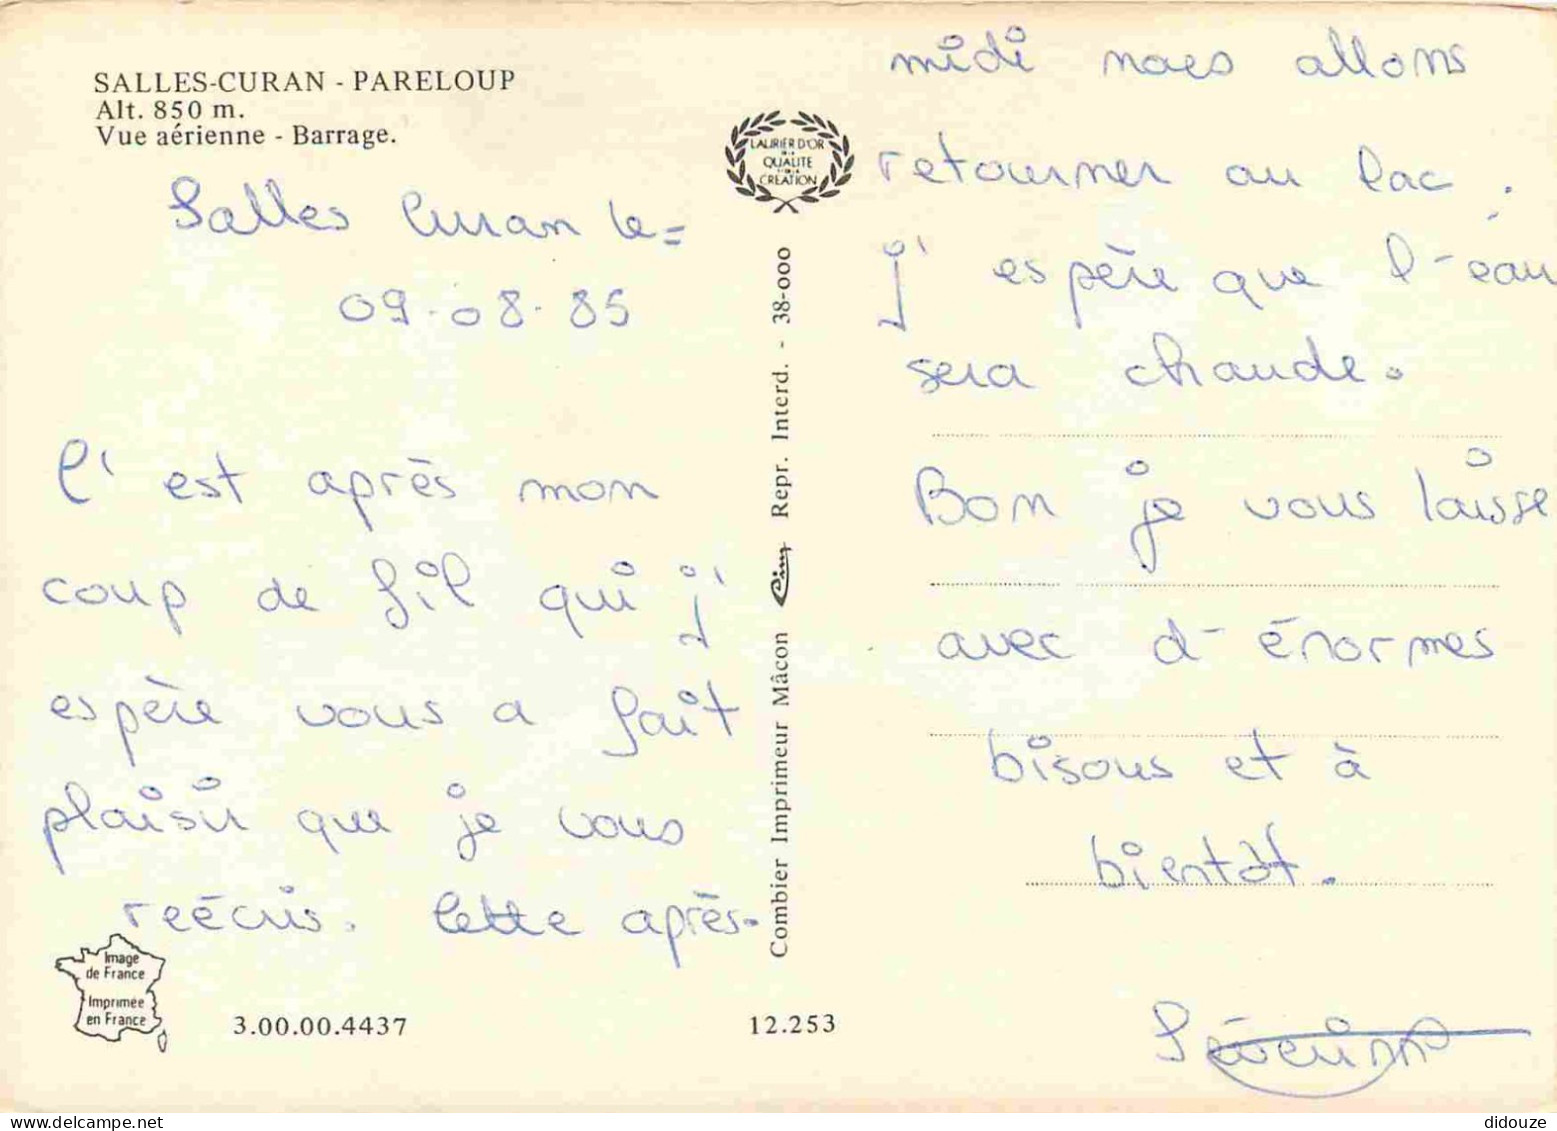 SALLES-CURAN - PARELOUP
Alt. 850 m.
Vue aérienne - Barrage.
Salles Curan le=
09-08-85
C'est après mon
coup de fil qui j'
espère vous a fait
plaisir que je vous
reécris. Cette après-
midi nous allons
retourner au lac.
j'espère que l'éau
sera chaude.
Bon je vous laisse
avec d'énormes
bisous et à
bientôt.
Séverine
LAURIER D'OR
DE LA
QUALITE
ET DE LA
CREATION
Combier Imprimeur Mâcon Cim Repr. Interd. - 38-000
Image
de France
Imprimée
en France
3.00.00.4437
12.253
didouze